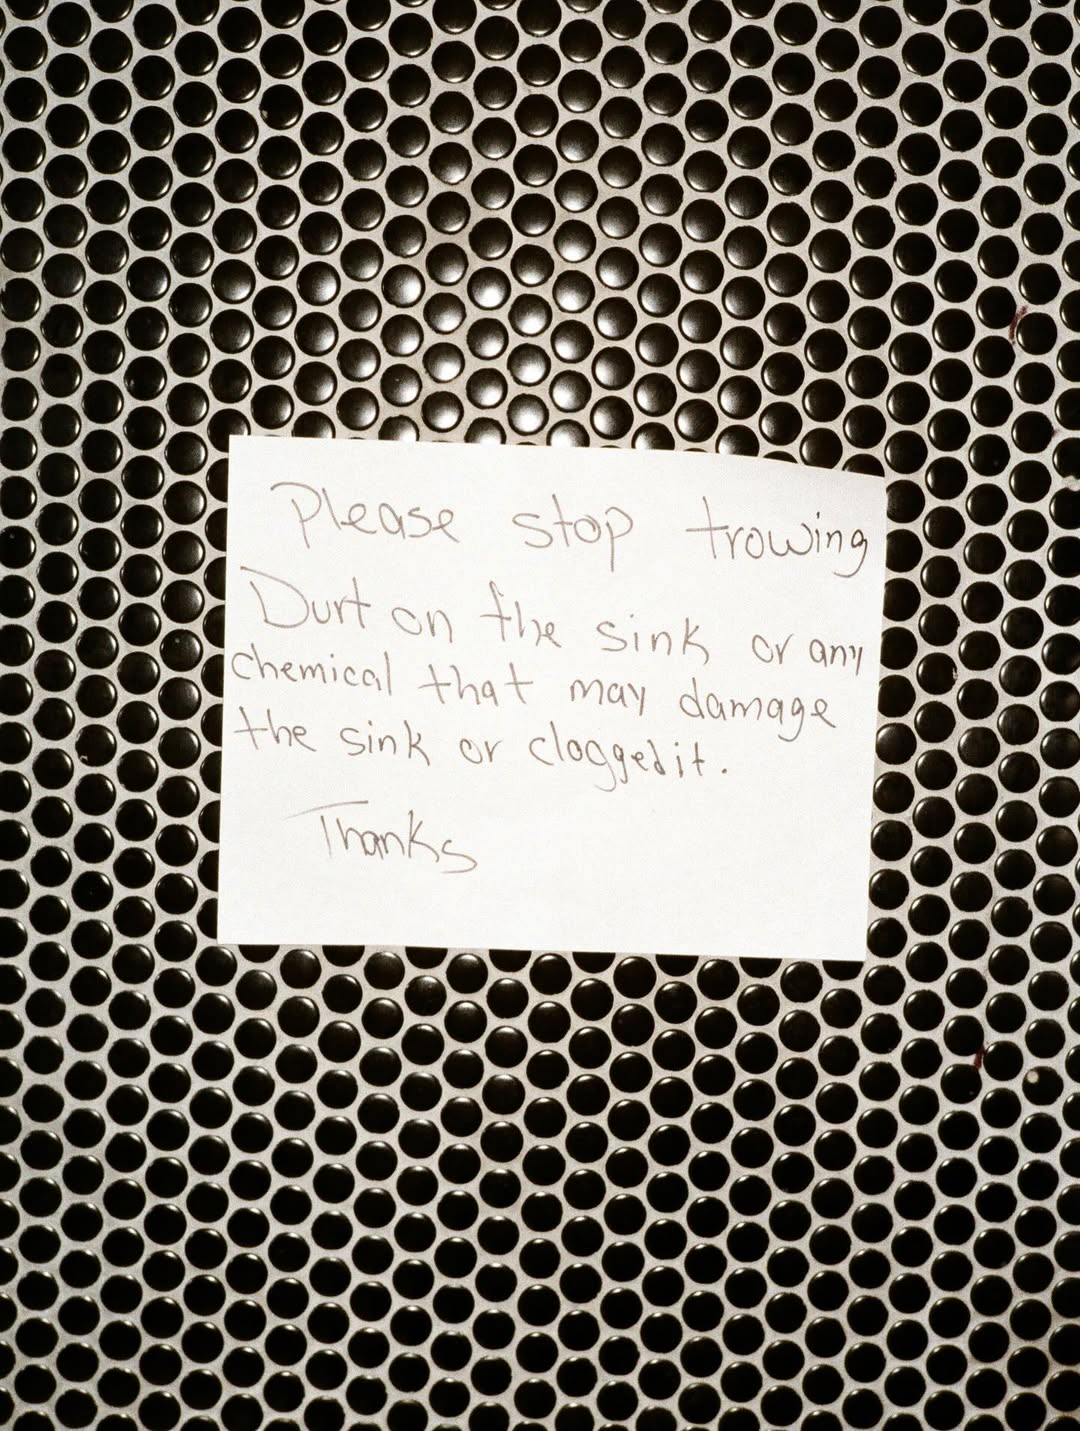 Please stop trowing
Durt on the sink or any
chemical that may damage
the sink or clogged it.
Thanks